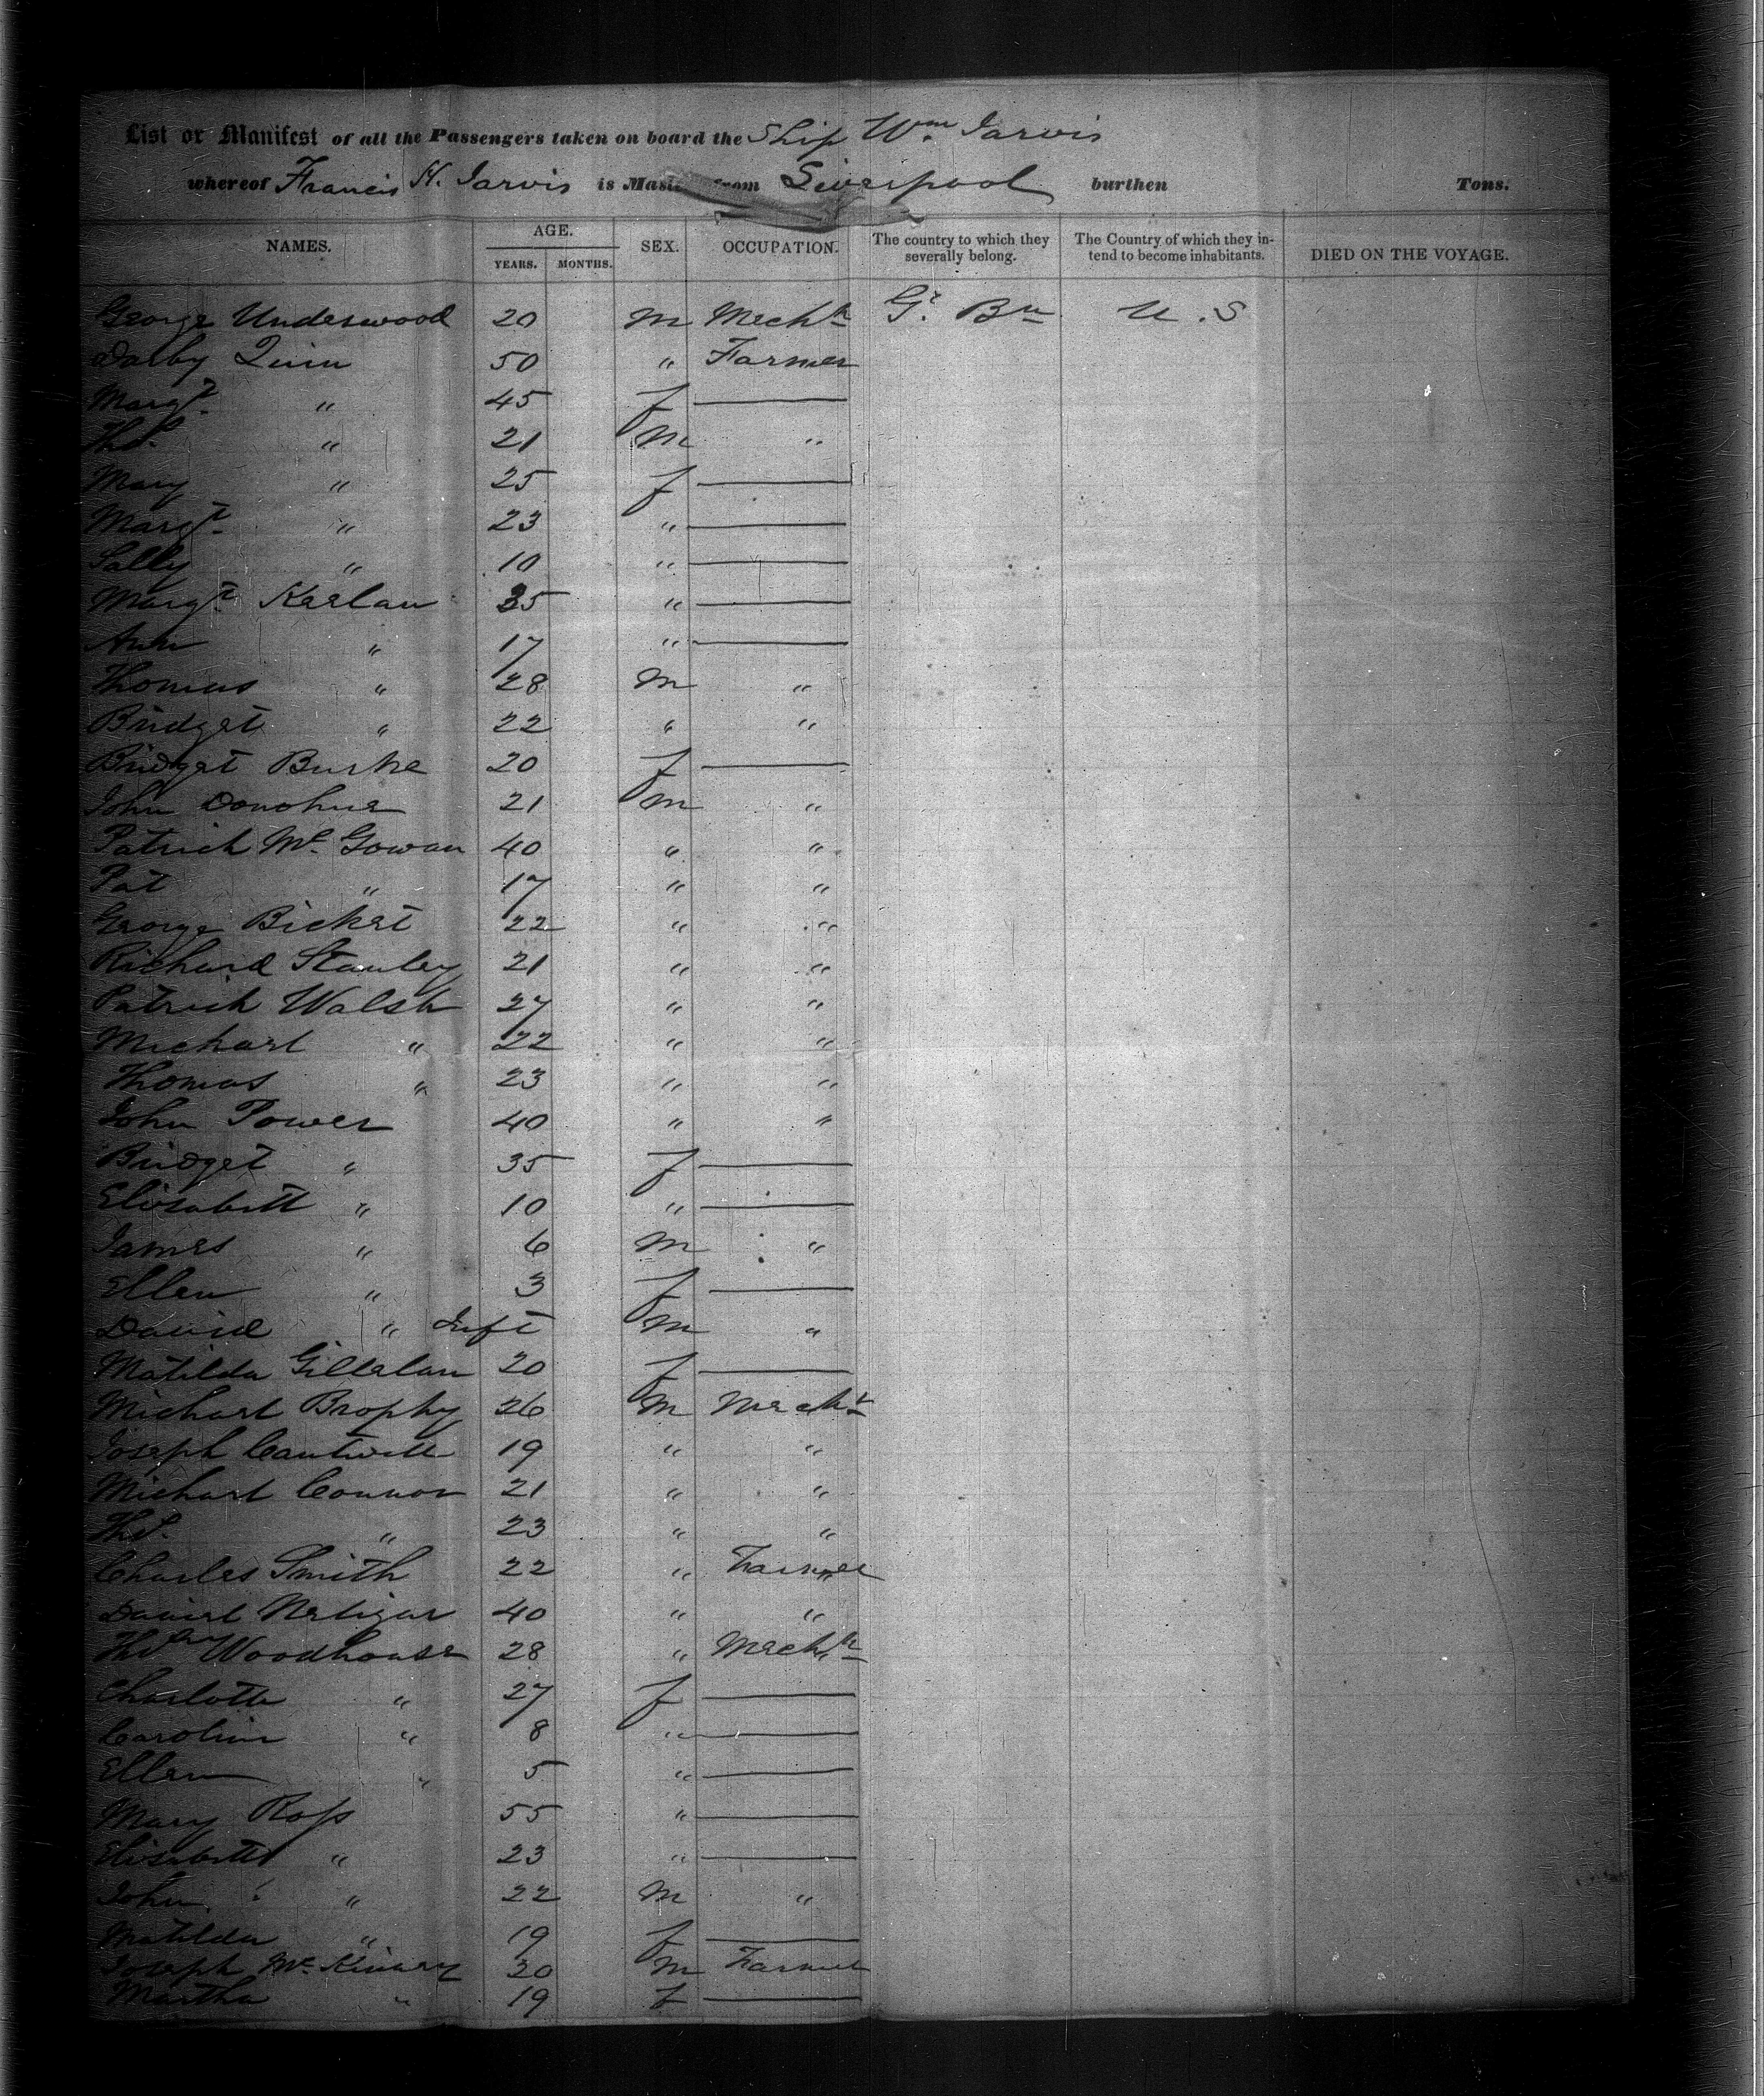 List or Manifest of all the Passengers taken on board the Ship Wm. Jarvis
whereof Francis H. Jarvis is Master from Liverpool burthen Tons.
NAMES. AGE. YEARS. MONTHS. SEX. OCCUPATION. The country to which they severally belong. The Country of which they intend to become inhabitants. DIED ON THE VOYAGE.
George Underwood 20 M Mech Gt. Bn U.S
Darby Quin 50 " Farmer
Margt. " 45 f —
Thos. " 21 M "
Mary " 25 f —
Margt. " 23 " —
Sally " 10 " —
Margt. Keelan 35 " —
Ann " 17 " —
Thomas " 28 M "
Bridget " 22 " "
Bridget Burke 20 f —
John Donohue 21 M "
Patrick Mc. Gowan 40 " "
Pat " 17 " "
George Bicket 22 " "
Richard Stanley 21 " "
Patrick Walsh 27 " "
Michael " 22 " "
Thomas " 23 " "
John Power 40 " "
Bridget " 35 f —
Elisabeth " 10 " —
James " 6 M "
Ellen " 3 f —
David " Inft M "
Matilda Gillelan 20 f —
Michael Brophy 26 M Mech
Joseph Cantwell 19 " "
Michael Connor 21 " "
Thos. " 23 " "
Charles Smith 22 " Farmer
Daniel Neligan 40 " "
Woodhouse 28 " Mech
Charlotte " 27 f —
Caroline " 8 " —
Ellen " 5 " —
Mary Ross 55 " —
Elisabeth " 23 " —
John " 22 M "
Matilda " 19 f —
Joseph Mc. Kinney 20 M Farmer
Martha " 19 f —